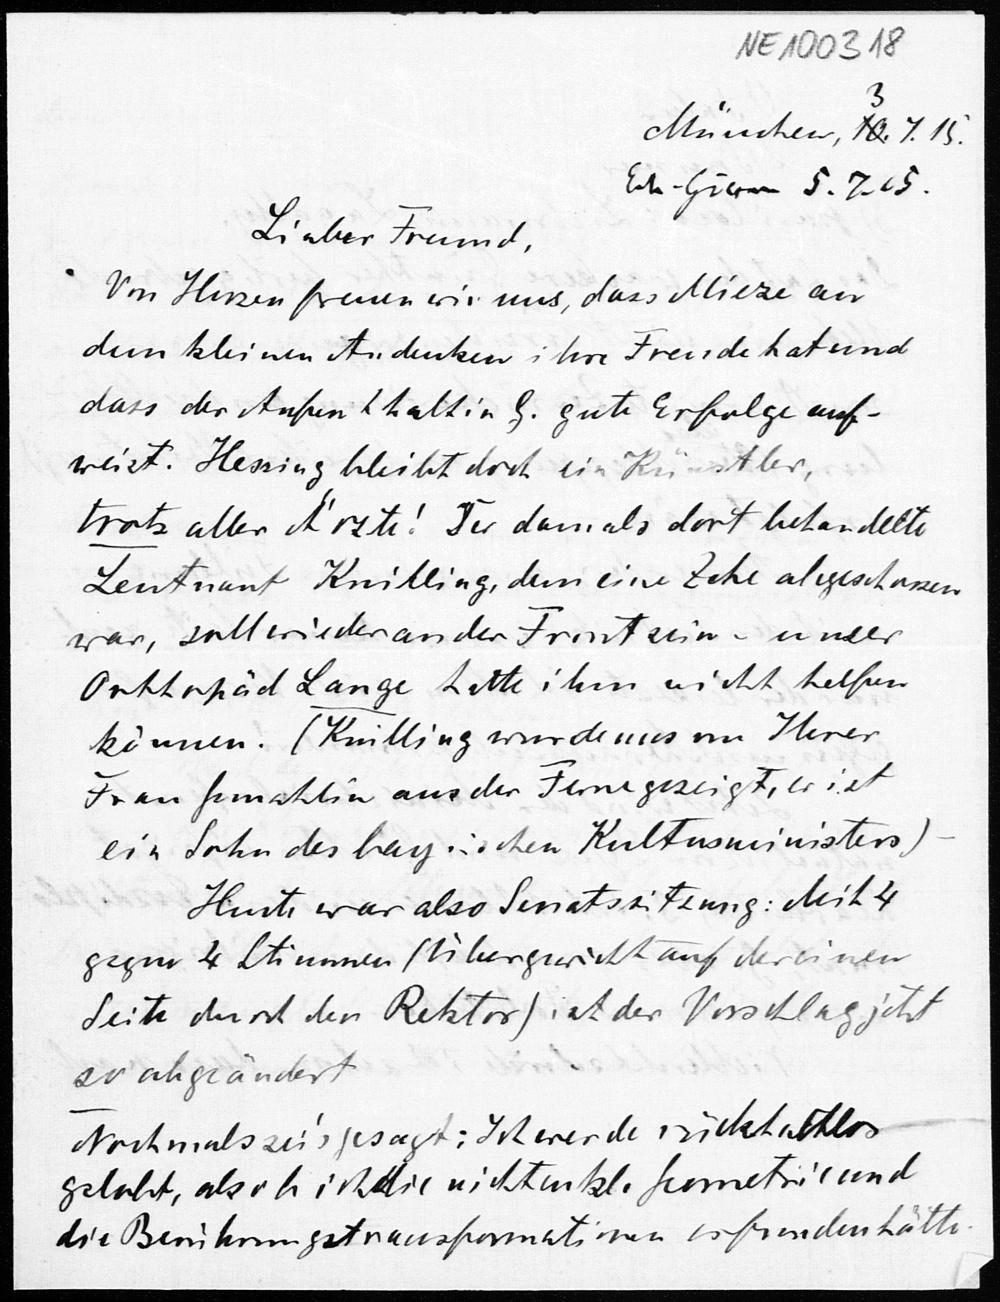 NE100318
München, 3. 7. 15.
5. 7. 15.
Lieber Freund,
Von Herzen freuen wir uns, dass Mieze an
dem kleinen Andenken ihre Freude hat und
dass der Aufenthalt in G. gute Erfolge auf-
weist. Hessing bleibt doch ein Künstler,
trotz aller Ärzte! Der damals dort behandelte
Leutnant Knilling, dem eine Zehe abgeschossen
war, soll wieder an der Front sein – unser
Orthopäd Lange hatte ihm nicht helfen
können. (Knilling wurde uns von Ihrer
Frau Gemahlin aus der Ferne gezeigt, er ist
ein Sohn des bayrischen Kultusministers) –
Heute war also Senatssitzung: Mit 4
gegen 4 Stimmen (Übergewicht auf der einen
Seite durch den Rektor) ist der Vorschlag jetzt
so abgeändert
Nochmals sei's gesagt: Ich werde rückhaltlos
gelobt, als ob ich die nichteukl. Geometrie und
die Berührungstransformationen erfunden hätte.